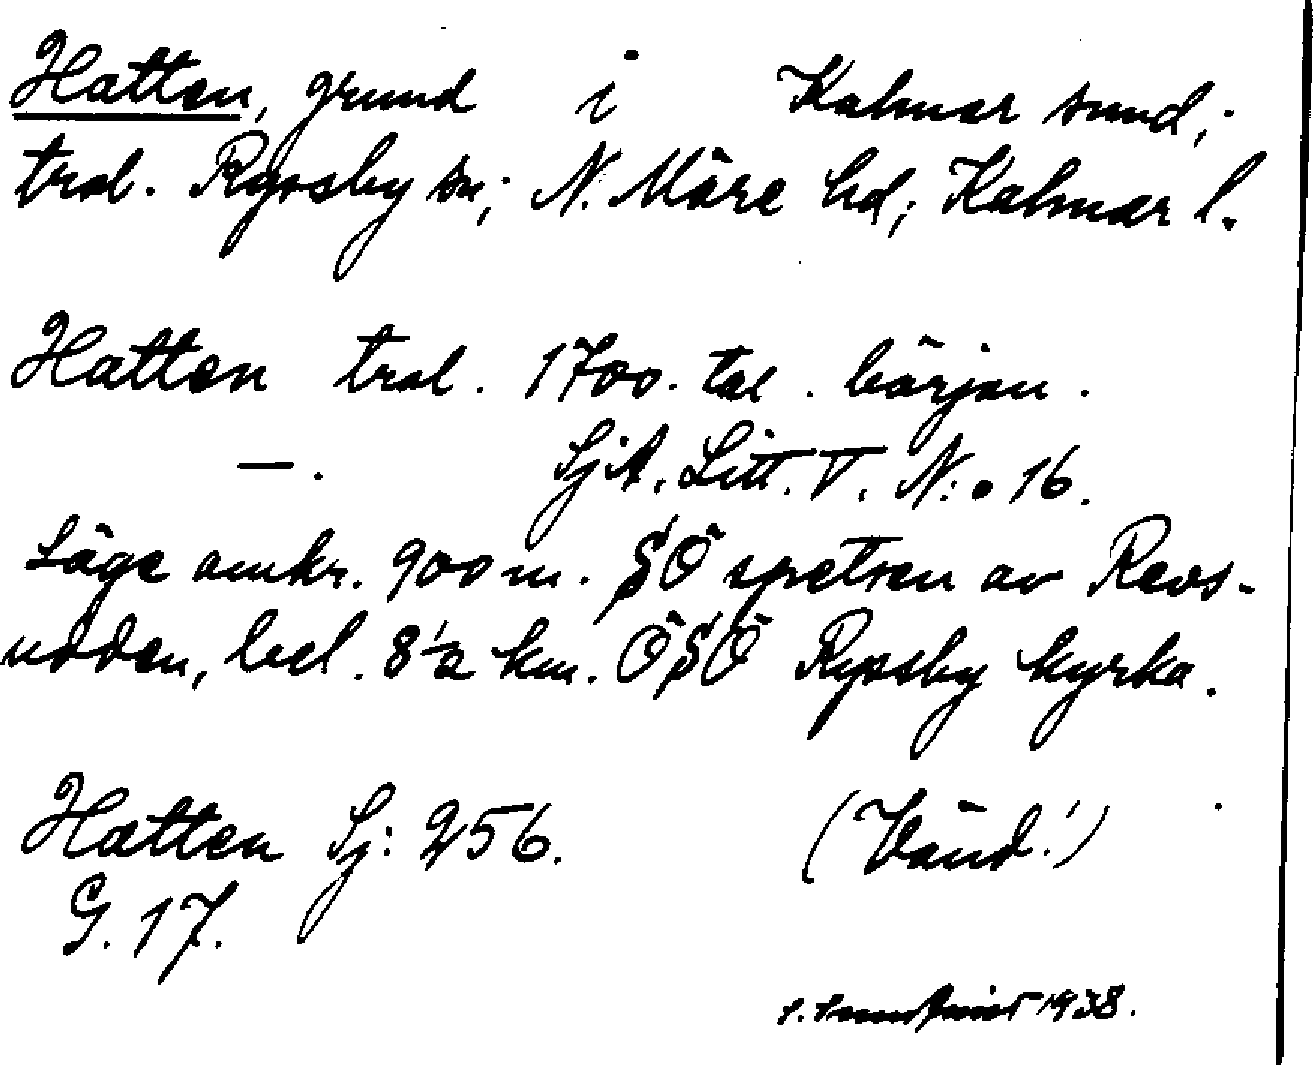 Hatten, grund i Kalmar sund;
trol. Ryssby sn; N. Möre hd; Kalmar l.
Hatten trol. 1700-tal. början.
—. SjA. Litt. T. N:o 16.
Läge omkr. 900 m. SÖ spetsen av Revs-
udden, bel. 8 1/2 km. ÖSÖ Ryssby kyrka.
Hatten Sj: 256. (Vänd!)
G. 17.
1938.